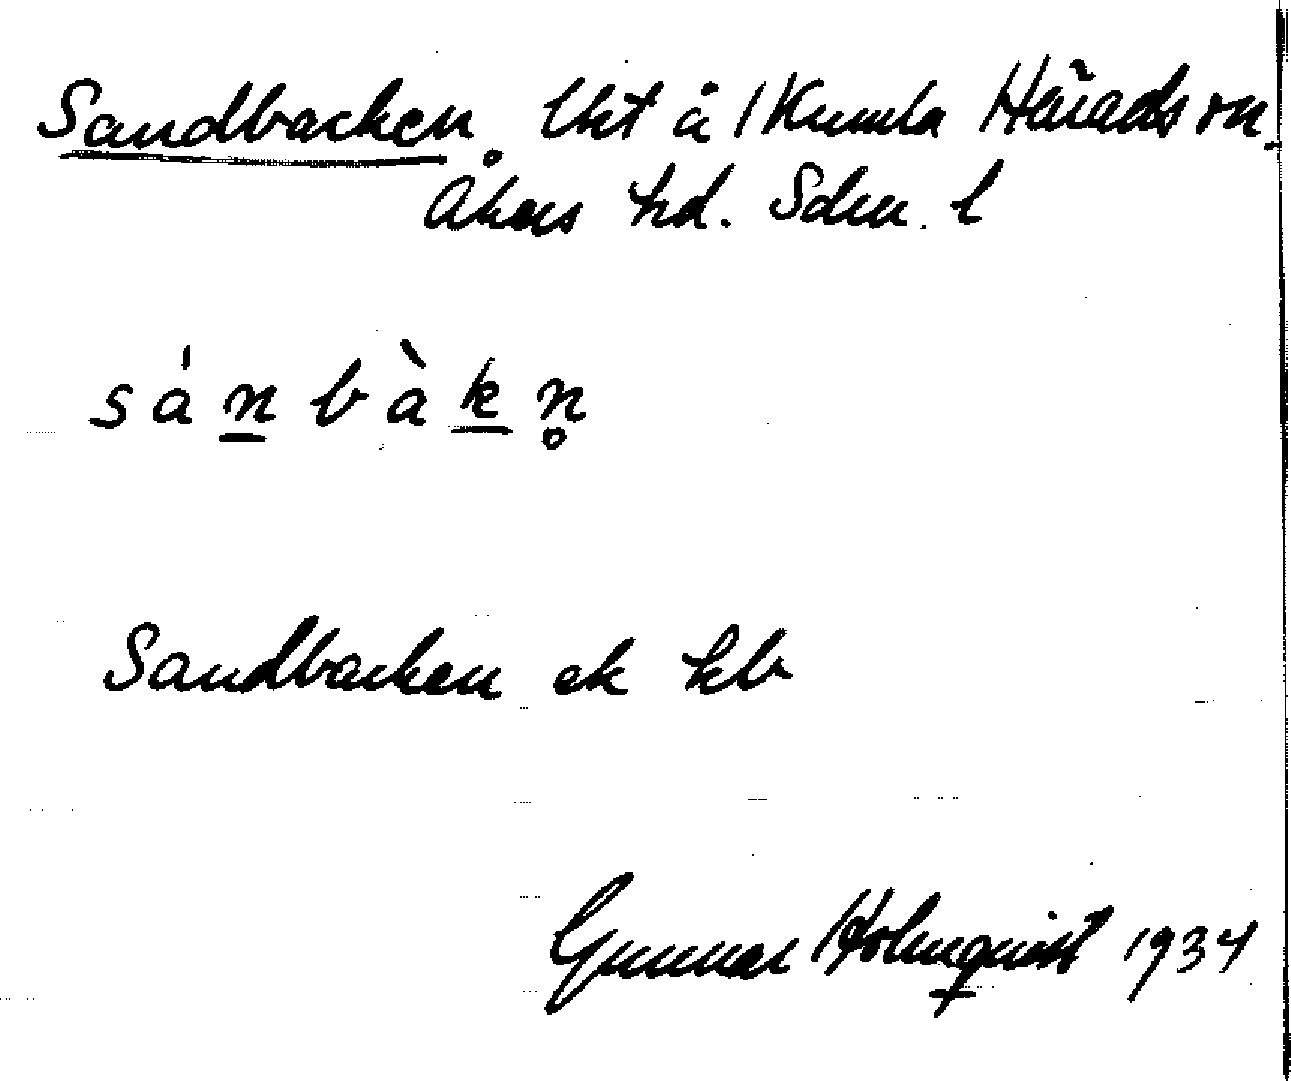 Sandbacken lht å 1 Kumla Härads sn.
Åkers hd. Sdm. l
sá̱n̲bàk̲n̥
Sandbacken ek kb
Gunnar Holmquist 1934